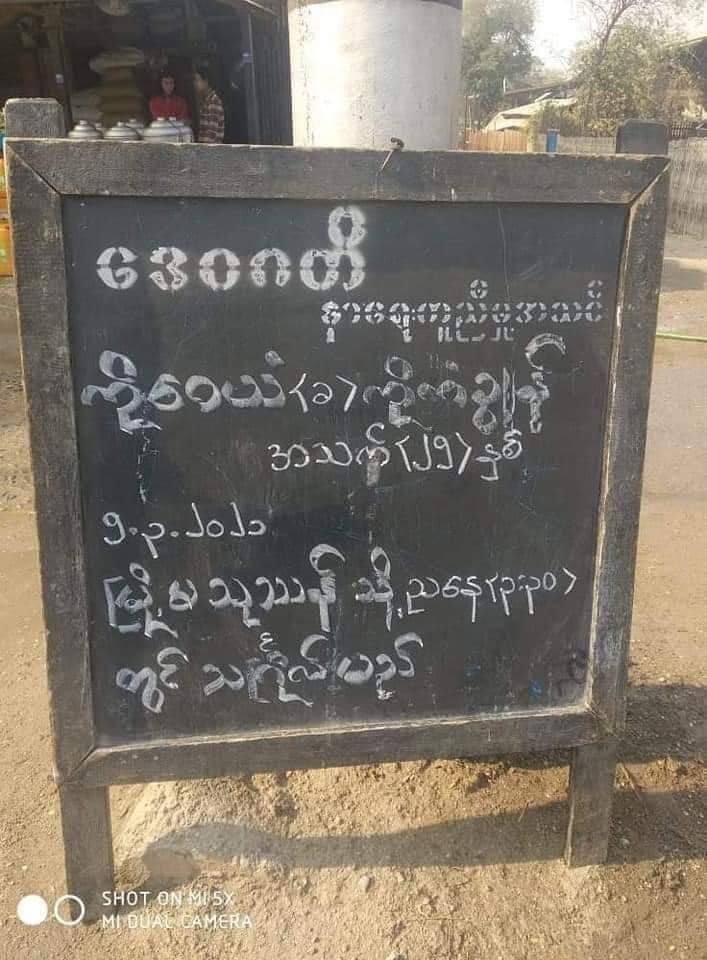 ဒေဝဂတိ
နာရေးကူညီမှုအသင်း
ကိုဝေယံ(ခ)ကိုကံချွန်
အသက်(၂၅)နှစ်
၅.၃.၂၀၂၁
မြို့မသုဿန်သို့ညနေ(၃:၃၀)
တွင် သင်္ဂြိုလ်မည်
SHOT ON MI 5X
MI DUAL CAMERA